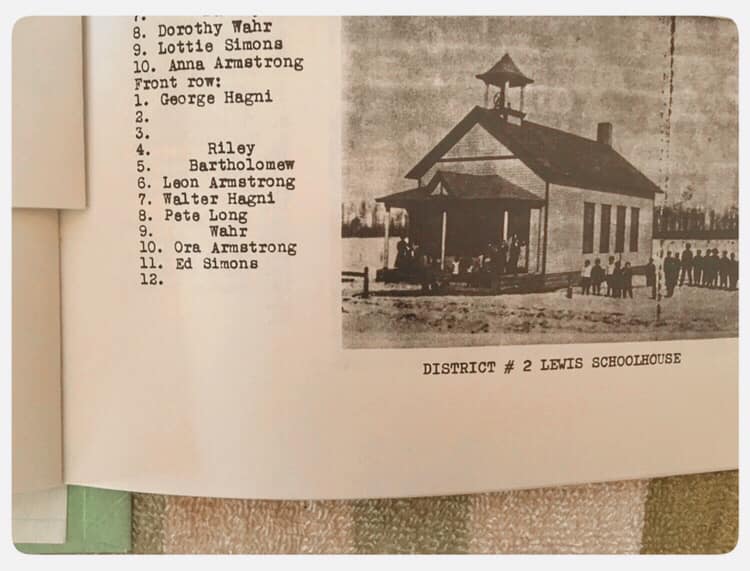 7.
8. Dorothy Wahr
9. Lottie Simons
10. Anna Armstrong
Front row:
1. George Hagni
2.
3.
4. Riley
5. Bartholomew
6. Leon Armstrong
7. Walter Hagni
8. Pete Long
9. Wahr
10. Ora Armstrong
11. Ed Simons
12.
DISTRICT # 2 LEWIS SCHOOLHOUSE